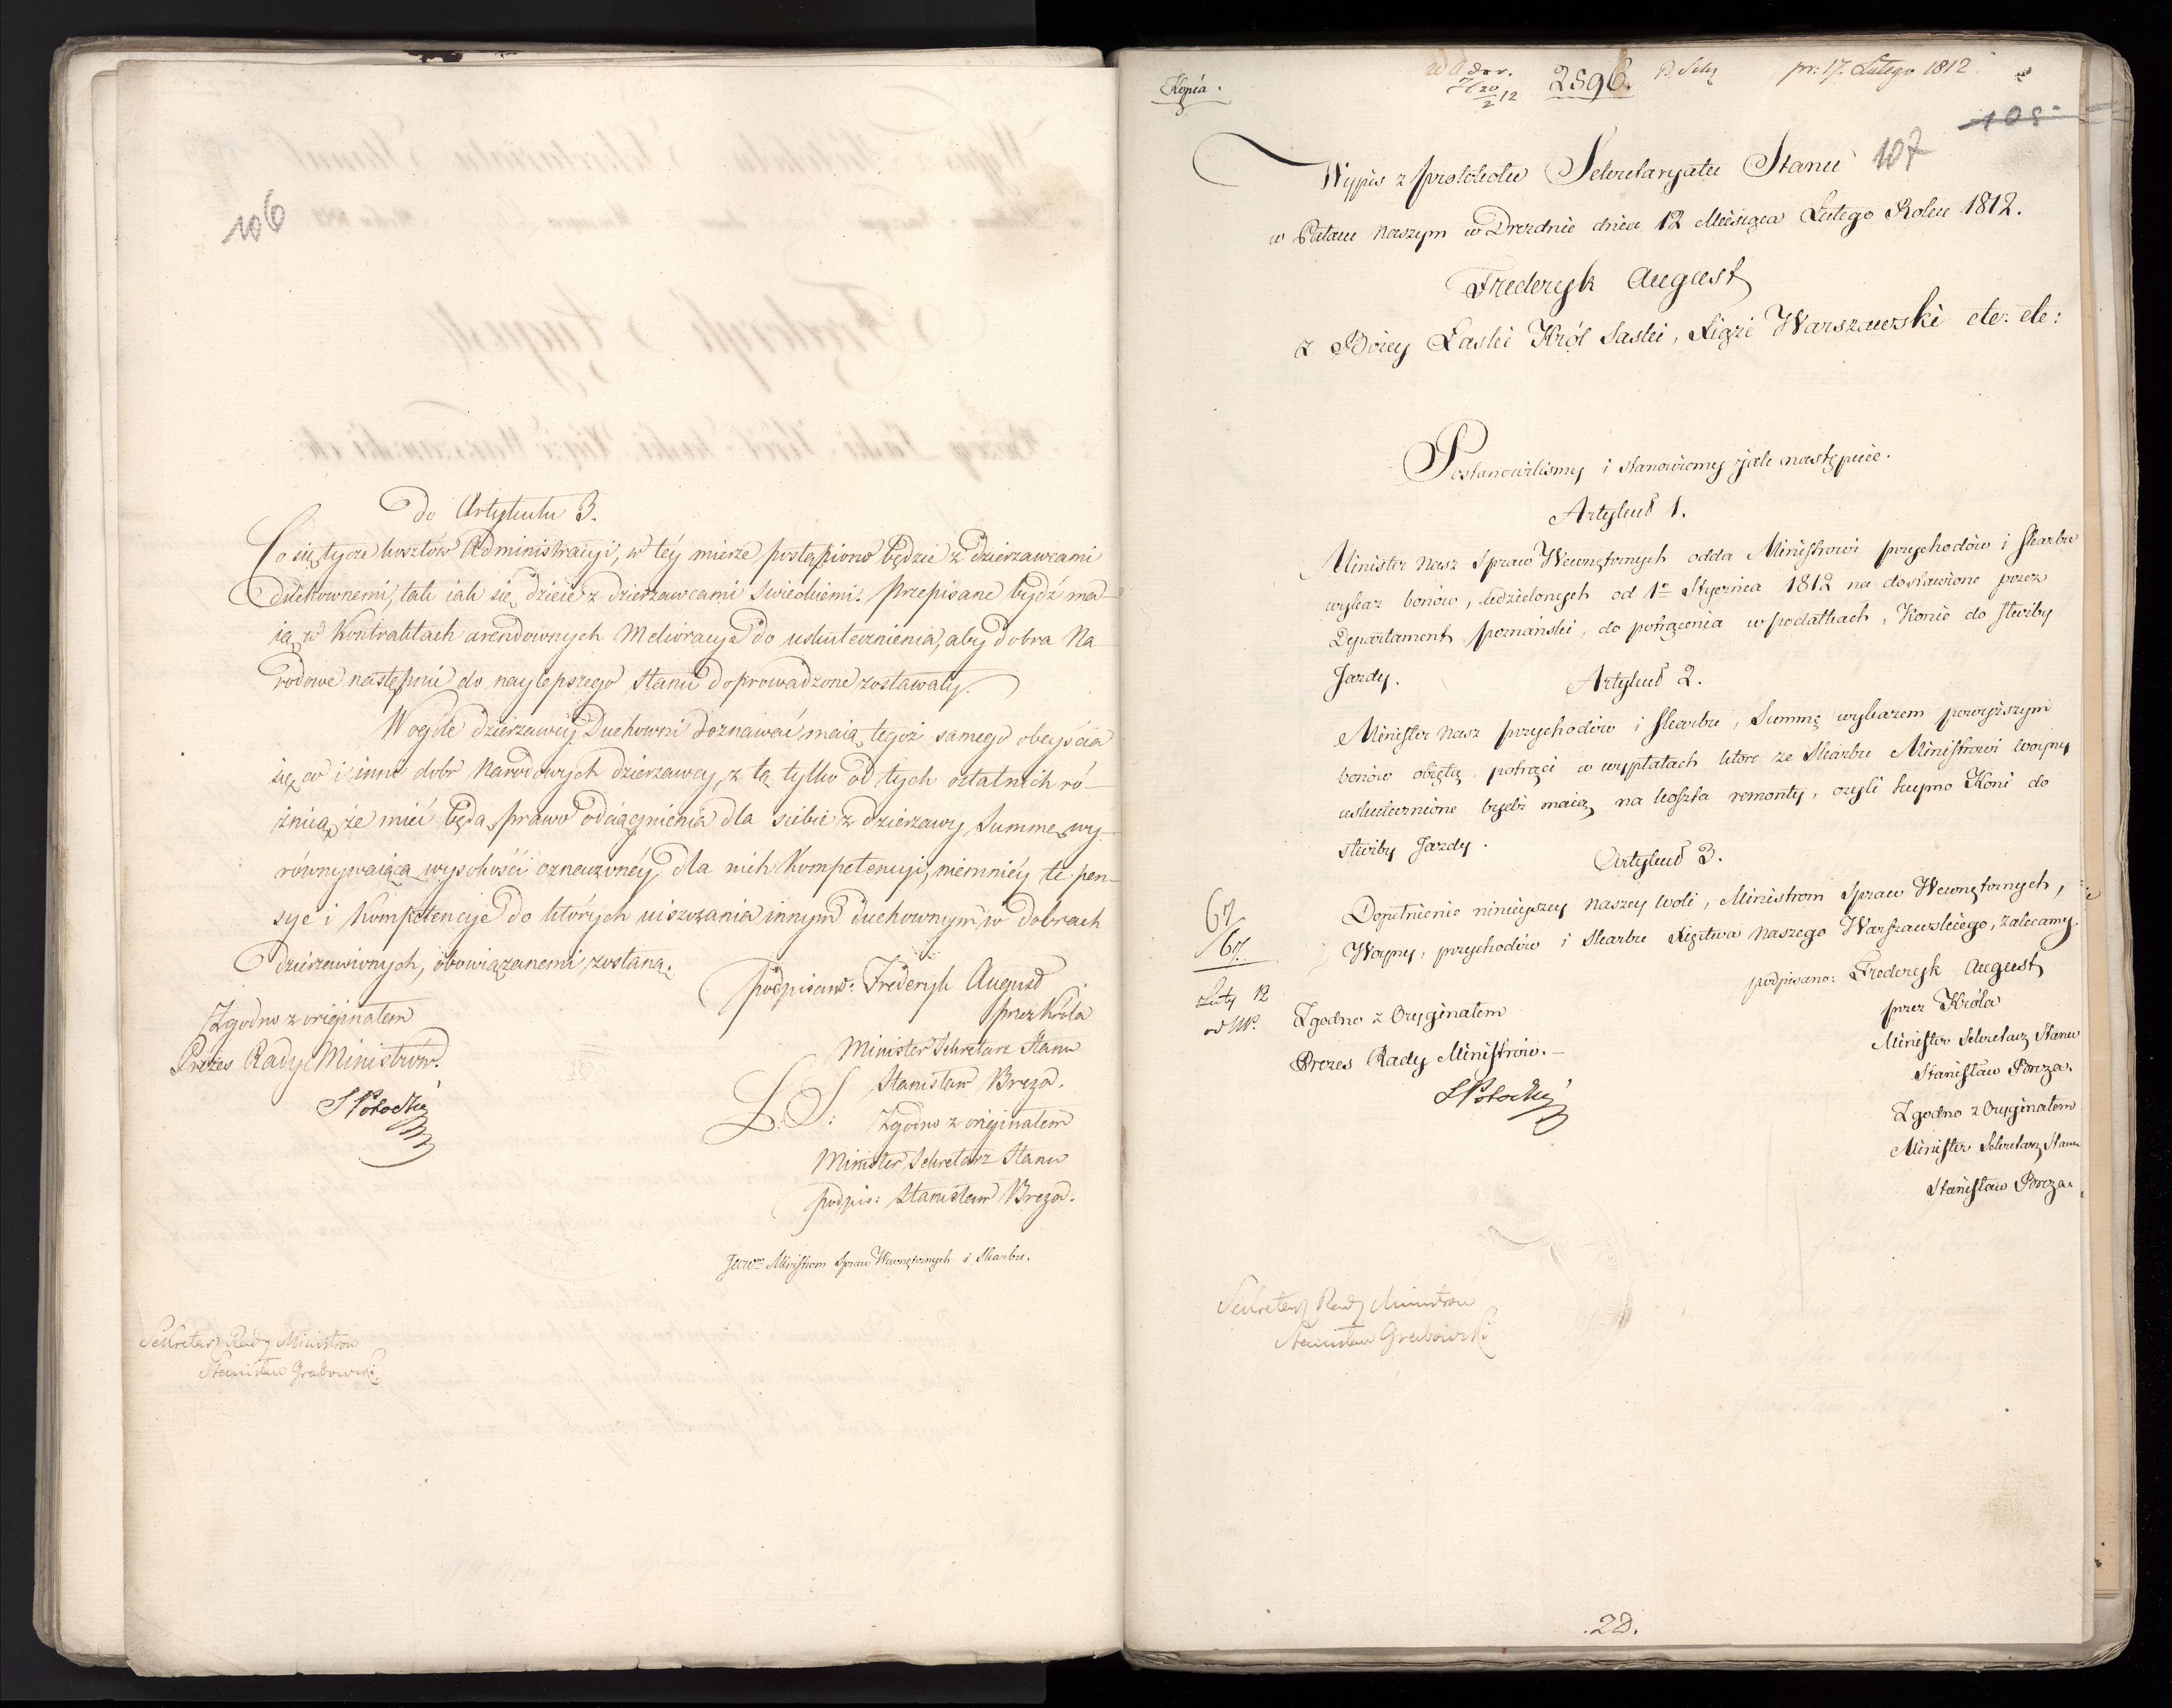 106
Do Artykułu 3.
Co się tycze kosztów Administracyi, w téy mierze postąpiono będzie z dzierzawcami
duchownemi, tak iak się dzieie z dzierzawcami swieckiemi. Przepisane bydź ma-
ią w Kontraktach arendownych Melioracye do uskutecznienia, aby dobra Na
rodowe następnie do naylepszego stanu doprowadzone zostawały.
W ogóle dzierzawcy Duchowni doznawać maią tegoż samego obeyścia
się co i inni dobr Narodowych dzierzawcy, z tą tylko od tych ostatnich ró-
żnicą, że mieć będą prawo odciągnienia dla siebie z dzierzawy Summę wy-
równywaiącą wysokości oznaczonéy dla nich Kompetencyi, niemniéy te pen-
sye i Kompetencye do których uiszczania innym duchownym w dobrach
dzierzawionych, obowiązanemi zostaną.
podpisano: Frederyk August
przez Króla
Minister Sekretarz Stanu
Stanisław Breza.
L. S:
Zgodno z originałem
Minister Sekretarz Stanu
podpis: Stanisław Breza.
Zgodno z originałem
Prezes Rady Ministrów.
S Potocki
JWW Ministrom Spraw Wewnętrznych i Skarbu.
Sekretarz Rady Ministrow
Stanisław Grabowski
Kopia.
2896.
pr: 17. Lutego 1812
107
Wypis z protokołu Sekretaryatu Stanu
w Pałacu Naszym w Dreznie dnia 12 Miesiąca Lutego Roku 1812.
Frederyk August
z Bożey Łaski Król Saski, Xiąże Warszawski etc: etc:
Postanowiliśmy i stanowiemy iak następuie.
Artykuł 1.
Minister Nasz Spraw Wewnętrznych odda Ministrowi przychodów i Skarbu
wykaz bonów, udzielonych od 1o Stycznia 1812 na dostawione przez
Departament poznański, do potrącenia w podatkach, Konie do służby
Jazdy.
Artykuł 2.
Minister Nasz przychodów i Skarbu, Summę wykazem powyższym
bonów obiętą, potrąci w wypłatach które ze Skarbu Ministrowi woyny
uskutecznione bydź maią na koszta remonty, czyli kupno Koni do
służby Jazdy.
Artykuł 3.
Dopełnienie ninieyszey Naszey woli, Ministrom Spraw Wewnętrznych,
Woyny, przychodów i Skarbu Xięstwa Naszego Warszawskiego, zalecamy.
podpisano: Frederyk August
przez Króla
Minister Sekretarz Stanu
Stanisław Breza.
Zgodno z Oryginałem
Minister Sekretarz Stanu
Stanisław Breza.
67
67.
Luty 12
Zgodno z Oryginałem
Prezes Rady Ministrów.
S Potocki
Sekretarz Rady Ministrow
Stanisław Grabowski
.28.